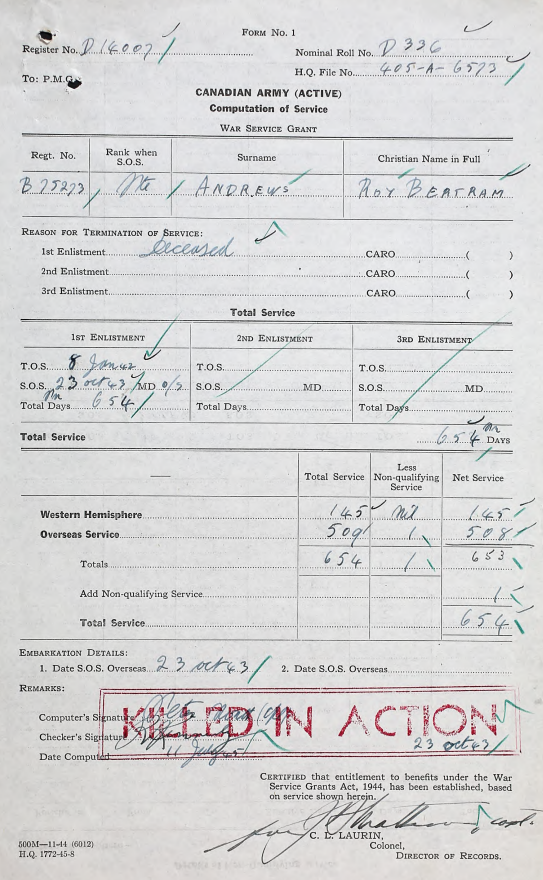 FORM NO. 1
Register No. D 14007 Nominal Roll No. D 336
To: P.M.G. H.Q. File No. 405-A-6573
CANADIAN ARMY (ACTIVE)
Computation of Service
WAR SERVICE GRANT
Regt. No. Rank when S.O.S. Surname Christian Name in Full
B 75273 Pte ANDREWS ROY BERTRAM
REASON FOR TERMINATION OF SERVICE:
1st Enlistment Deceased CARO ( )
2nd Enlistment CARO ( )
3rd Enlistment CARO ( )
Total Service
1ST ENLISTMENT 2ND ENLISTMENT 3RD ENLISTMENT
T.O.S. 8 Jan 42 T.O.S. T.O.S.
S.O.S. 23 oct 43 MD o/s S.O.S. MD S.O.S. MD
Total Days 654 Total Days Total Days
Total Service 654 DAYS
Total Service Less Non-qualifying Service Net Service
Western Hemisphere 145 Nil 145
Overseas Service 509 1 508
Totals 654 1 653
Add Non-qualifying Service 1
Total Service 654
EMBARKATION DETAILS:
1. Date S.O.S. Overseas 23 oct 43 2. Date S.O.S. Overseas
REMARKS:
KILLED IN ACTION
23 oct 43
Computer's Signature
Checker's Signature
Date Computed 11 July 45
CERTIFIED that entitlement to benefits under the War
Service Grants Act, 1944, has been established, based
on service shown herein.
for capt.
C. L. LAURIN,
Colonel,
DIRECTOR OF RECORDS.
500M—11-44 (6012)
H.Q. 1772-45-8